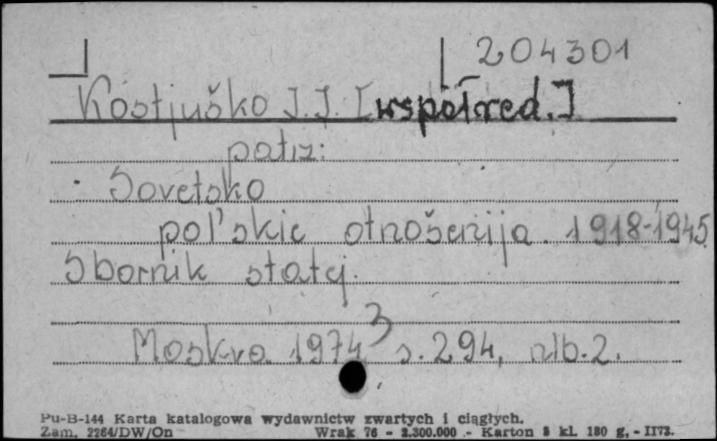 204301
Kostjuško I. I. [współred.]
patrz:
Sovetsko
pol'skie otnošenija. 1918-1945.
Sbornik statej.
3
Moskva 1974 s. 294, alb. 2.
Pu-B-144 Karta katalogowa wydawnictw zwartych i ciągłych.
Zam. 2264/DW/On Wrak 76 - 2.300.000 - Karton 3 kl. 180 g, - II73.